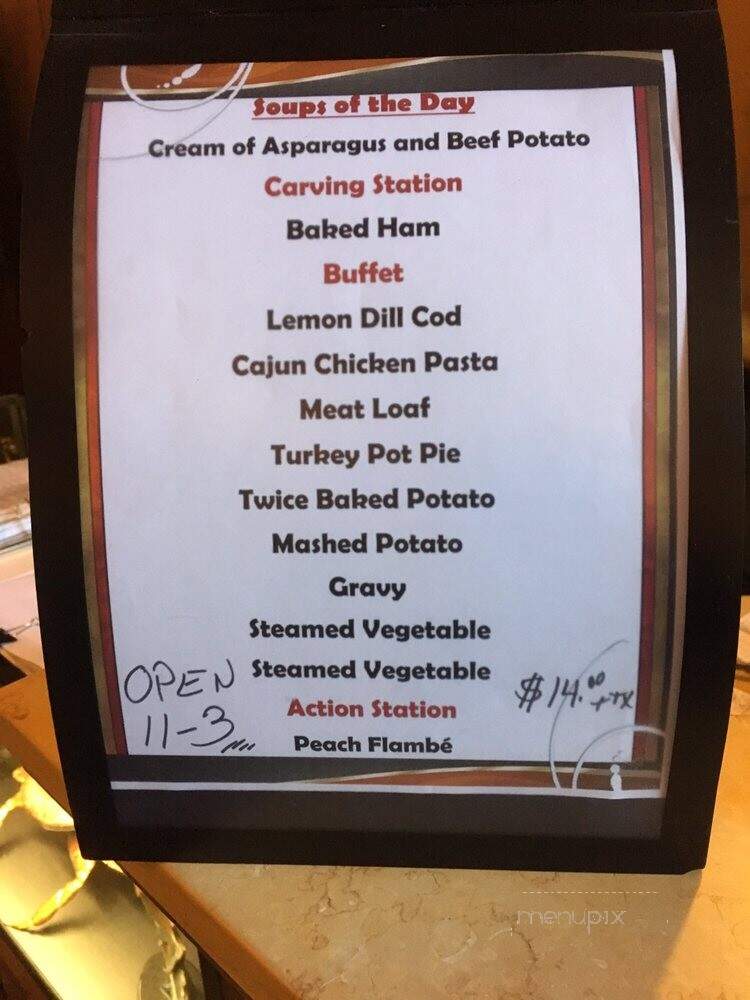 Soups of the Day
Cream of Asparagus and Beef Potato
Carving Station
Baked Ham
Buffet
Lemon Dill Cod
Cajun Chicken Pasta
Meat Loaf
Turkey Pot Pie
Twice Baked Potato
Mashed Potato
Gravy
Steamed Vegetable
Steamed Vegetable
Action Station
Peach Flambé
OPEN
11-3
$14.00 +TX
menupix